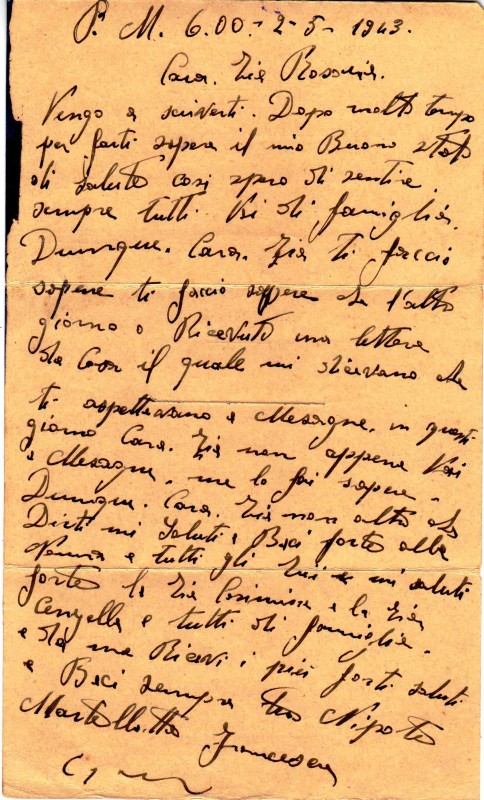 P. M. 600. - 2 - 5 - 1943.
Cara. Zia Rosaria.
Vengo a scriverti. Dopo molto tempo
per farti sapere il mio Buono stato
di salute cosi spero di sentire.
sempre tutti. Voi di famiglia.
Dunque. Cara. Zia ti faccio
sapere ti faccio sapere che l'altro
giorno o Ricevuto una lettera
da Casa il quale mi dicevano che
ti aspettavano a Mesagne. in questi
giorno Cara. Zia non appena Vai
a Mesagne. me lo fai sapere.
Dunque. Cara. Zia non altro da
Dirti mi saluti e Baci forto alla
Nonna e tutti gli Zii e mi saluti
forto la Zia Cosimina e la Zia
e tutti di famiglia.
e da me Ricevi i più forti saluti
e Baci sempre tuo Nipote
Martellotta
Francesco